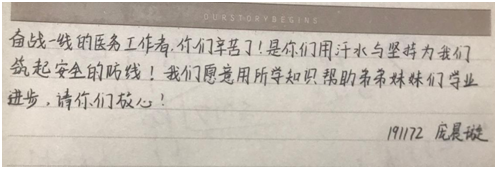 OURSTORYBEGINS
奋战一线的医务工作者,你们辛苦了!是你们用汗水与坚持为我们
筑起安全的防线!我们愿意用所学知识帮助弟弟妹妹们学业
进步,请你们放心!
191172 庞晨璇